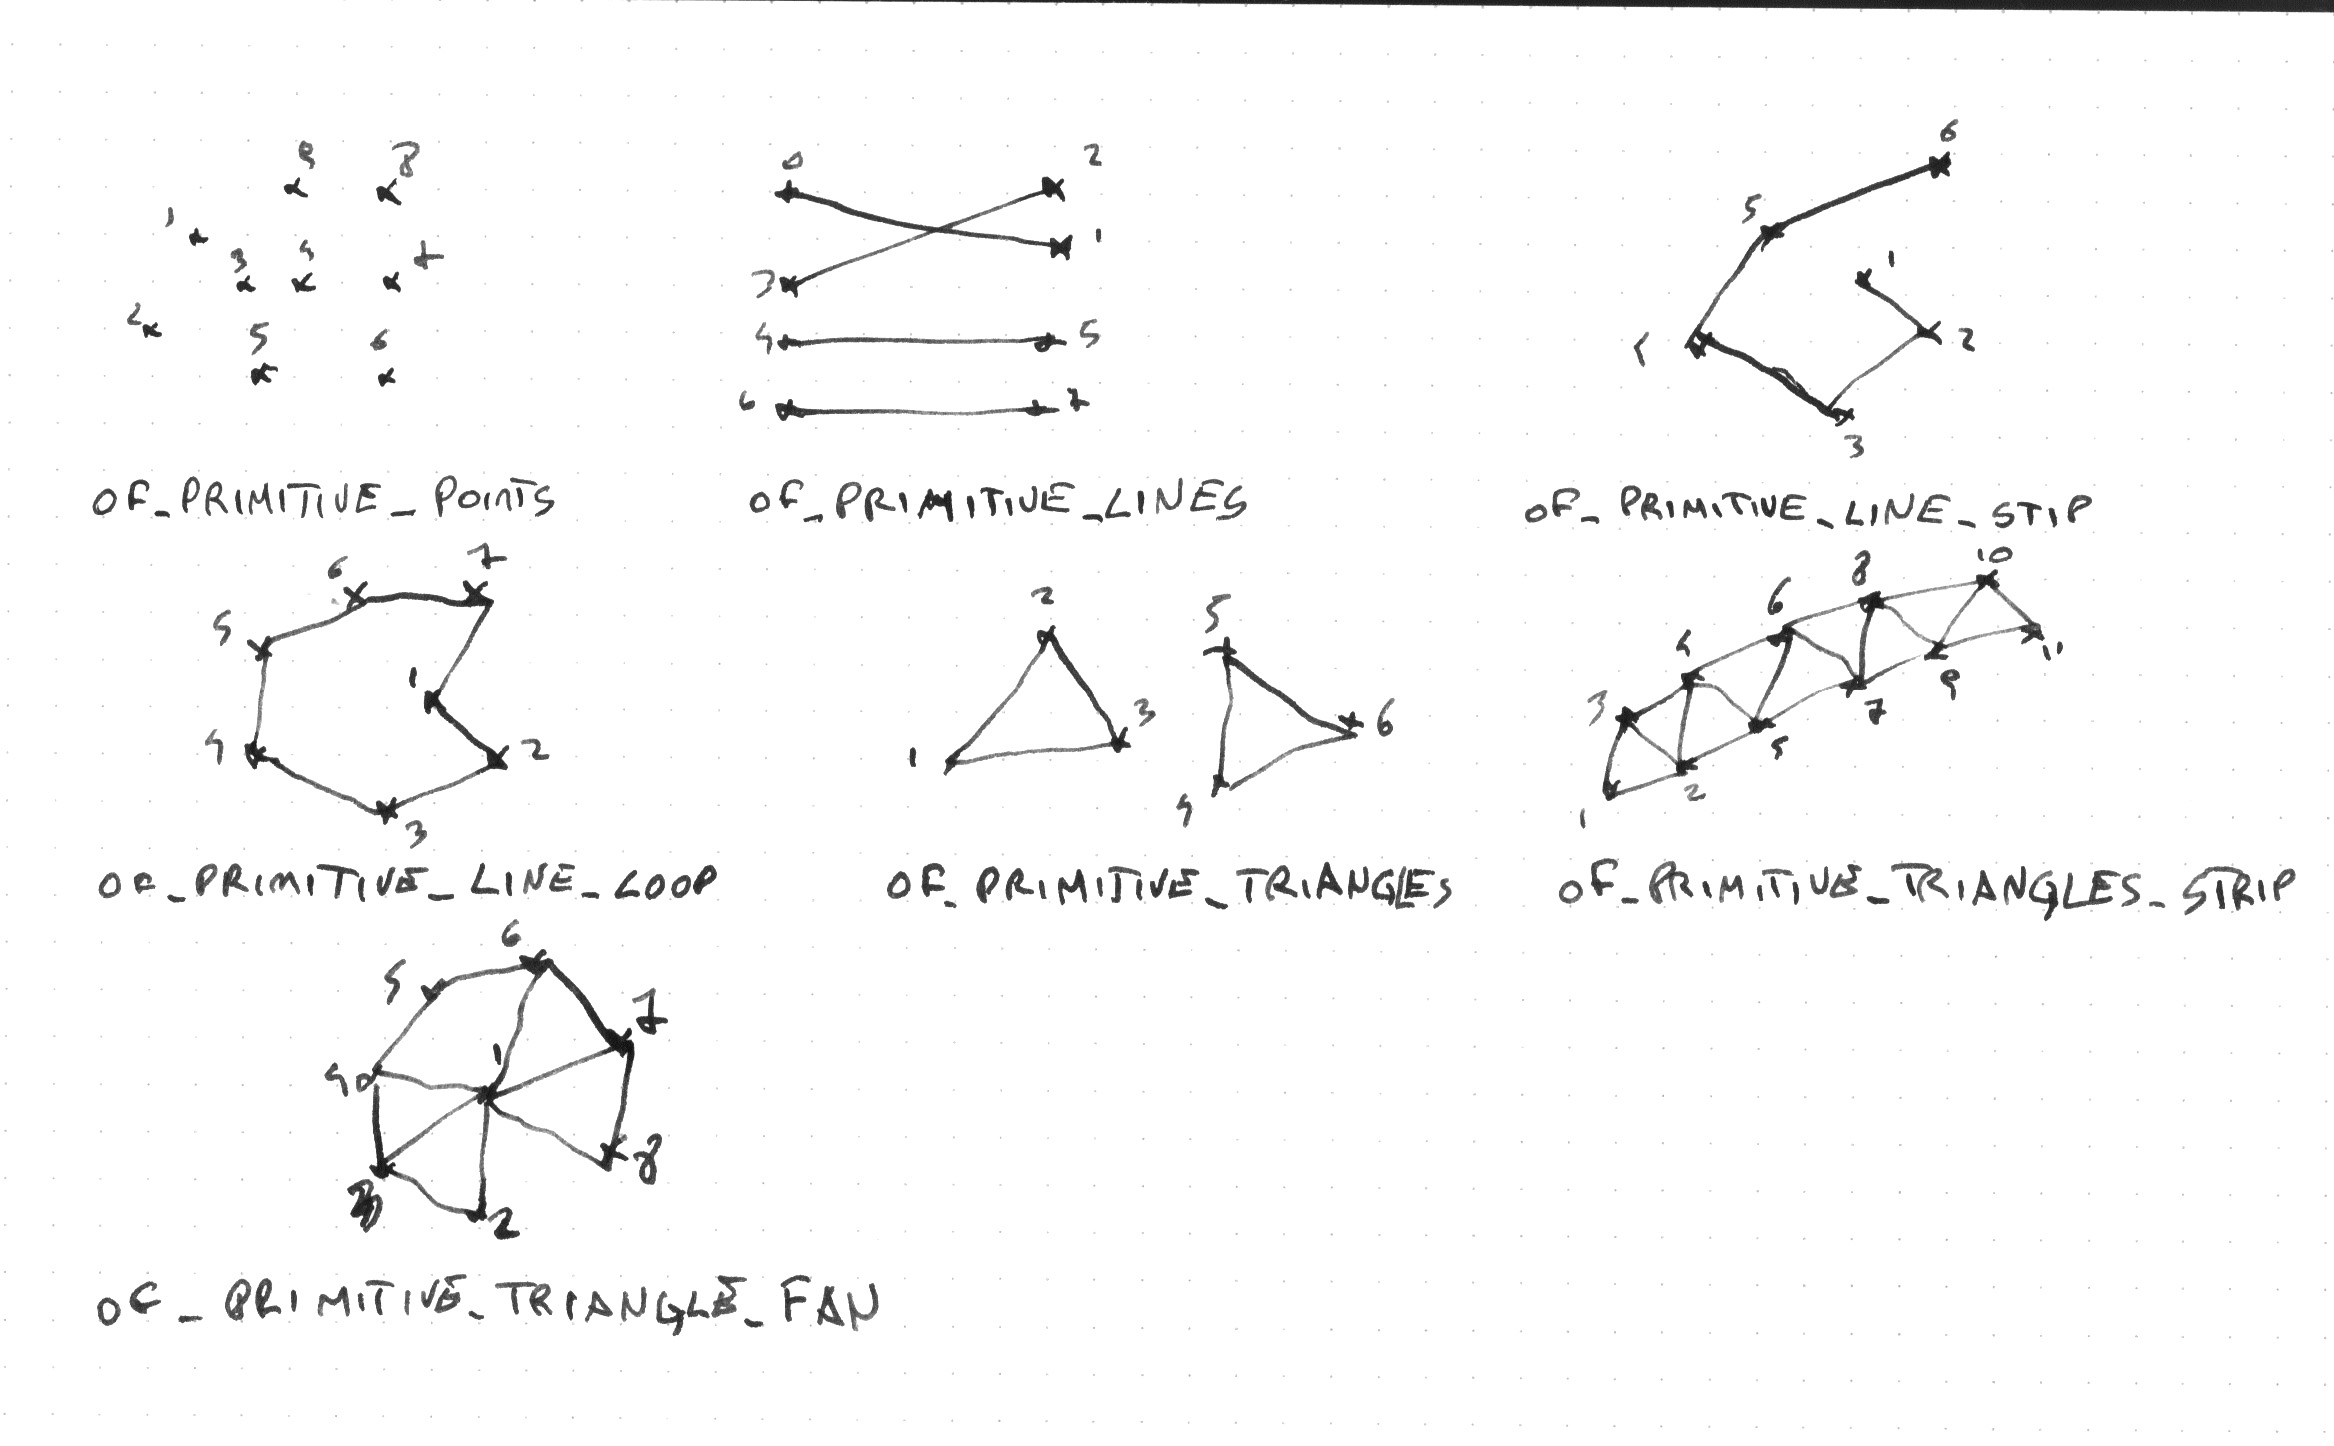 9 8
1
3 4 7
2
5 6
OF_PRIMITIVE_POINTS
0 2
1
3
4 5
6 7
OF_PRIMITIVE_LINES
6
5
1
2
3
OF_PRIMITIVE_LINE_STIP
6 7
5
1
4 2
3
OF_PRIMITIVE_LINE_LOOP
2 5
3 6
1
4
OF_PRIMITIVE_TRIANGLES
8 10
6
4
3 11
9
7
5
2
1
OF_PRIMITIVE_TRIANGLES_STRIP
6
5 7
1
4
8
3 2
OF_PRIMITIVE_TRIANGLE_FAN